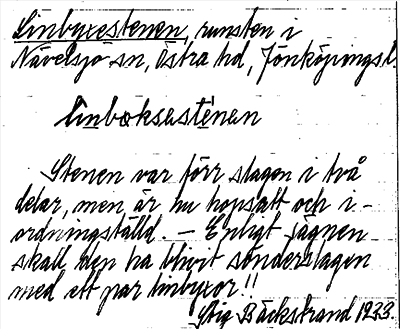 Linbyxestenen, runsten i
Nävelsjö sn, Östra hd, Jönköpingsl.
linboksastenan
Stenen var förr slagen i två
delar, men är nu hopsatt och i-
ordningställd – Enligt sägnen
skall den ha blivit sönderslagen
med ett par linbyxor!!
Stig Bäckstrand 1933.